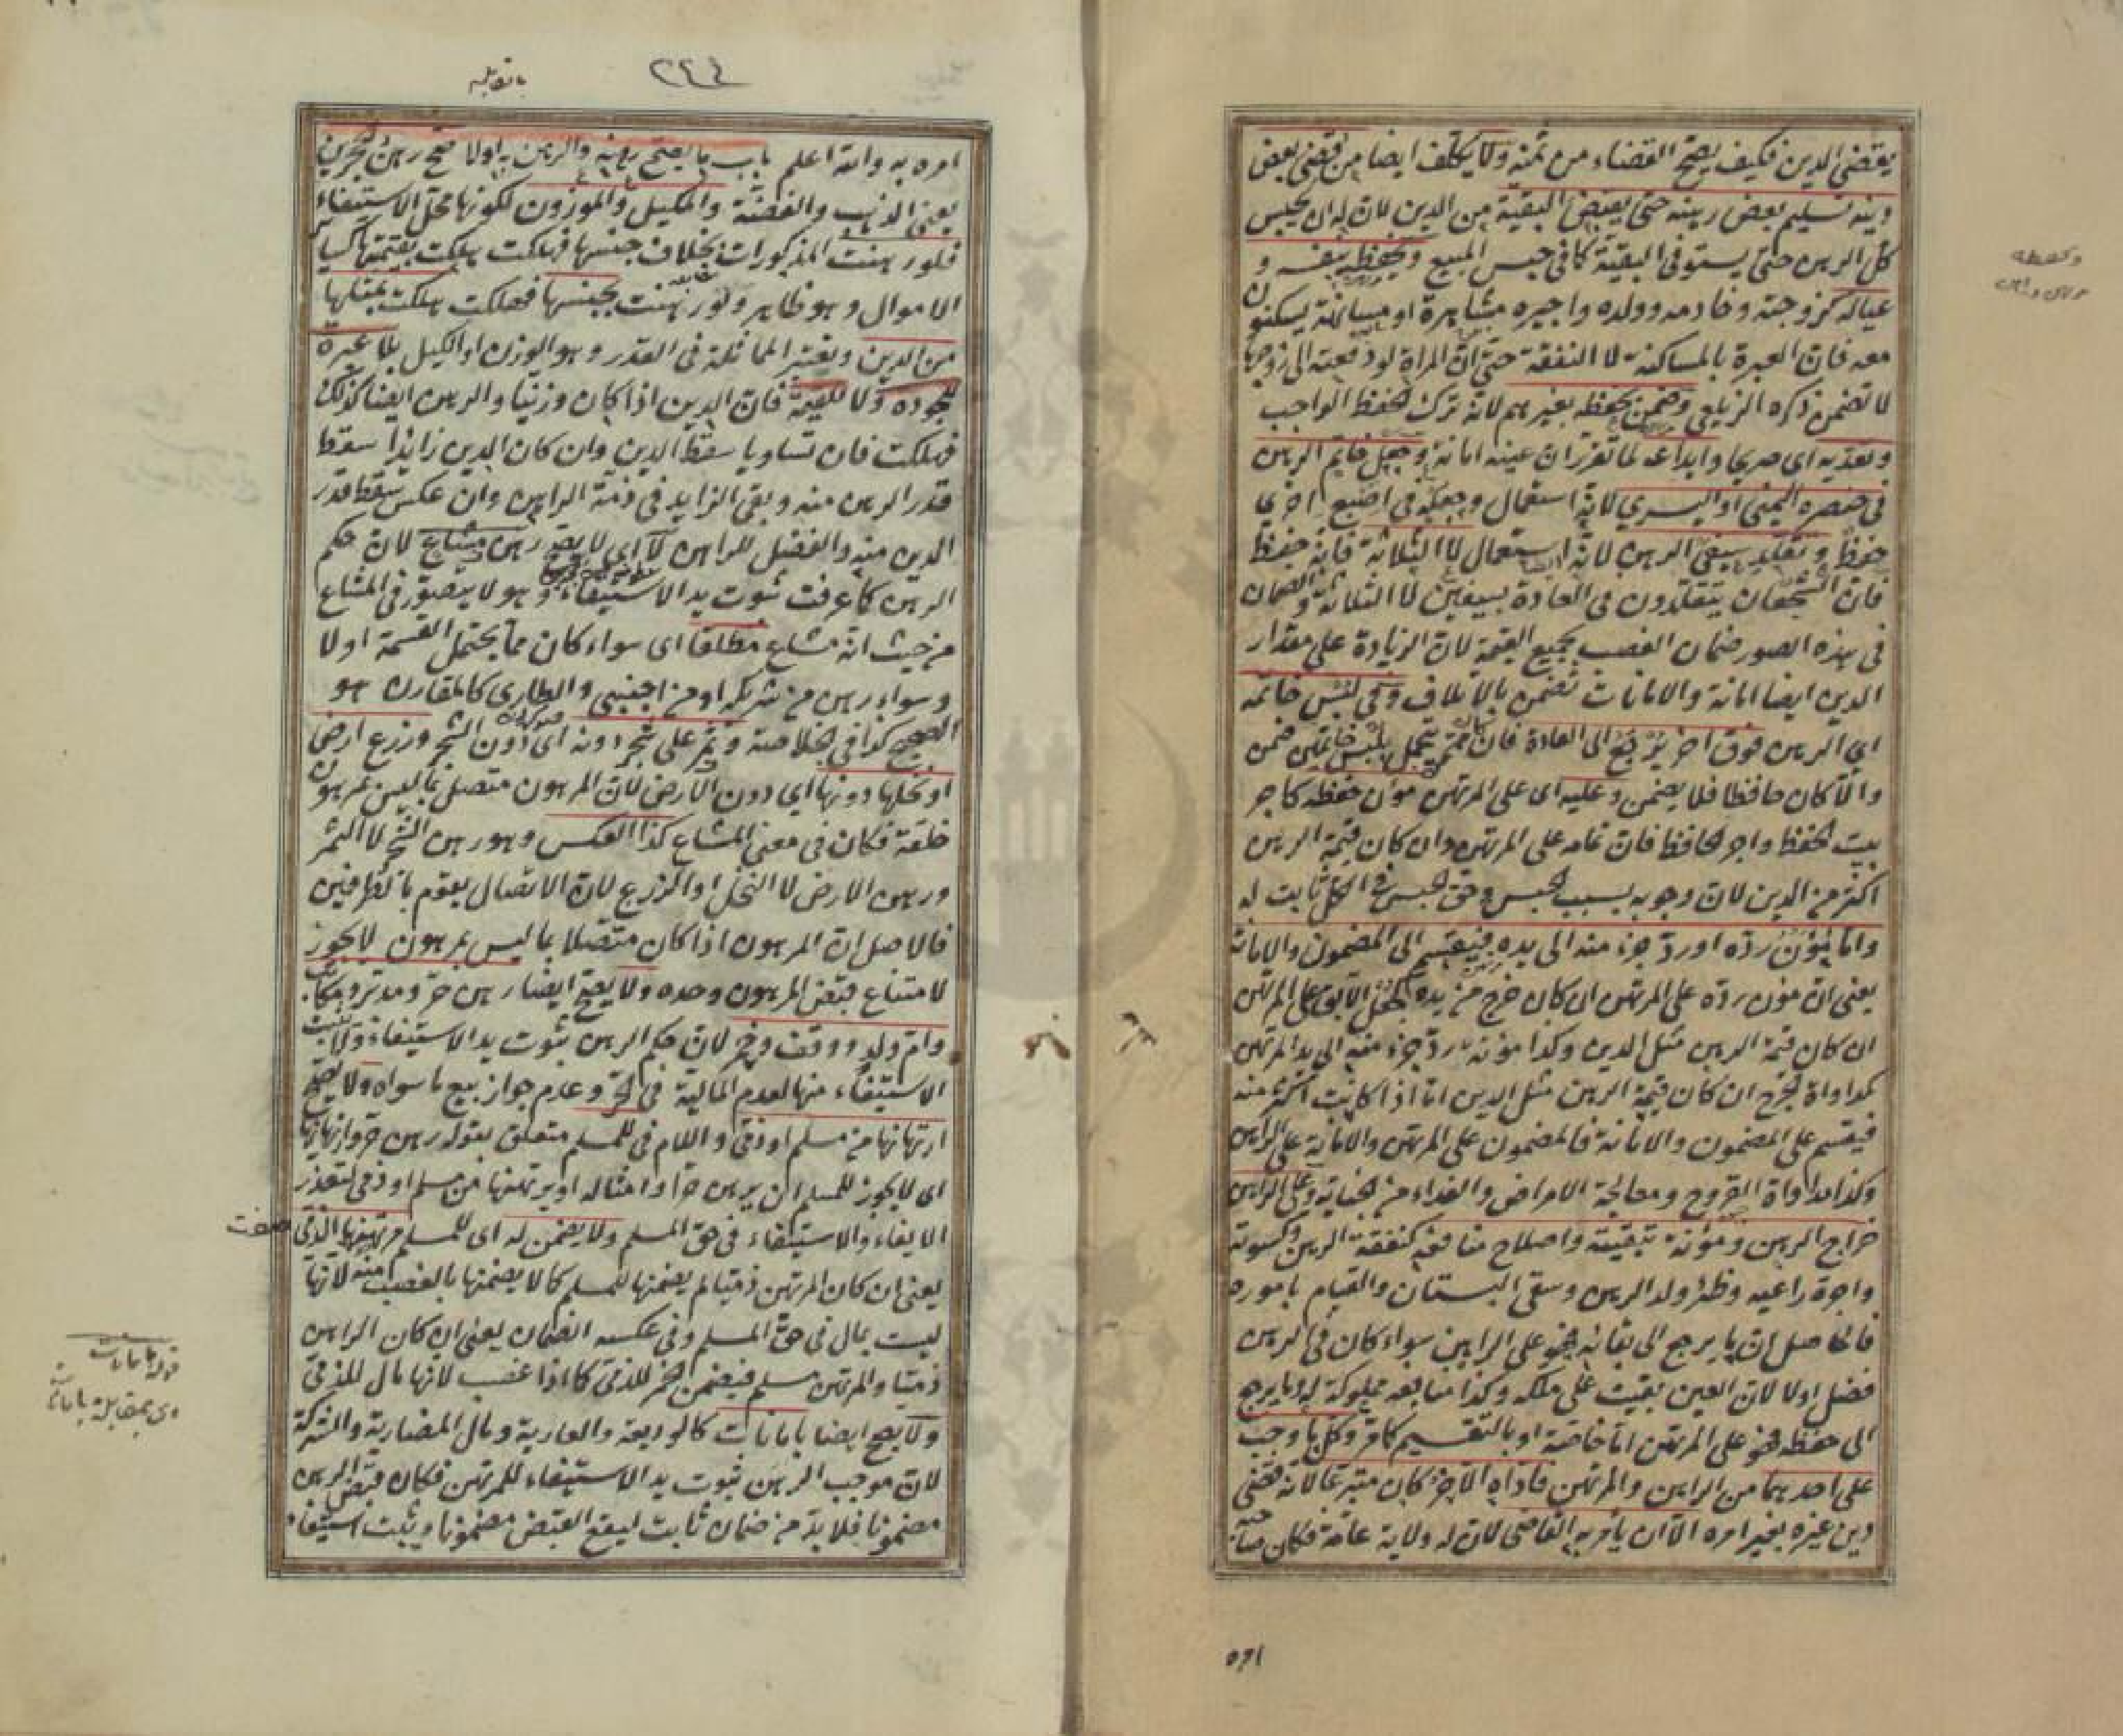 يقضي الدين فكيف يصح القضاء من ثمنه ولا يكلف ايضا من قضى بعض
دينه تسليم بعض رهنه حتى يقبض البقية من الدين لان له ان يحبس
كل الرهن حتى يستوفي البقية كما في حبس المبيع ويحفظه بنفسه و
عياله كزوجته وخادمه وولده واجيره مشاهرة او مسانهة يسكنون
معه فان العبرة بالمساكنة لا النفقة حتى ان المراة لو دفعته الى زوجها
لا تضمن ذكره الزيلعي وضمن بحفظه بغيرهم لانه ترك الحفظ الواجب
وتعديه اي صريحا وايداعه لما تقرر ان عينه امانة وجعل خاتم الرهن
في خنصره اليمنى او اليسرى لانه استعمال وجعله في اصبع اخرى
حفظ وتقلد سيفي الرهن لانه استعمال لا الثلاثة فانه حفظ
فان الشجعان يتقلدون في العادة بسيفين لا الثلاثة والضمان
في هذه الصور ضمان الغصب بجميع القيمة لان الزيادة على مقدار
الدين ايضا امانة والامانات تضمن بالاتلاف وفي لبس خاتمه
اي الرهن فوق اخر يرجع الى العادة فان ممن يتجمل بلبس خاتمين ضمن
والا كان حافظا فلا يضمن وعليه اي على المرتهن مؤن حفظه كاجر
بيت الحفظ واجر الحافظ فان تمامه على المرتهن وان كان قيمة الرهن
اكثر من الدين لان وجوبه بسبب الحبس وحق الحبس في الكل ثابت له
واما مؤن رده او رد جزء منه الى يده فينقسم الى المضمون والامانة
يعني ان مؤن رده على المرتهن ان كان خرج من يده كجعل الآبق على المرتهن
ان كان قيمة الرهن مثل الدين وكذا مؤنة رد جزء منه الى يد المرتهن
كمداواة الجرح ان كان قيمة الرهن مثل الدين اما اذا كانت اكثر منه
فيقسم على المضمون والامانة فالمضمون على المرتهن والامانة على الراهن
وكذا مداواة القروح ومعالجة الامراض والفداء من الجناية وعلى الراهن
خراج الرهن ومؤنة تبقيته واصلاح منافعه كنفقة الرهن وكسوته
واجرة راعيه وظئر ولد الرهن وسقي البستان والقيام باموره
فالحاصل ان ما يرجع الى بقائه فهو على الراهن سواء كان في الرهن
فضل اولا لان العين بقيت على ملكه وكذا منافعه مملوكة له وما يرجع
الى حفظه فهو على المرتهن اما خاصة او بالتقسيم كما مر وكل ما وجب
على احدهما من الراهن والمرتهن فاداه الآخر كان متبرعا لانه قضى
دين غيره بغير امره الا ان يامر به القاضي لان له ولاية عامة فكان صاحبه
امره
٢٤٤
امره به والله اعلم باب ما يصح رهنه والرهن به اولا صح رهن الحجرين
يعني الذهب والفضة والمكيل والموزون لكونها محل الاستيفاء
فلو رهنت المذكورات بخلاف جنسها فهلكت هلكت بقيمتها كسائر
الاموال وهو ظاهر ولو رهنت بجنسها فهلكت هلكت بمثلها
من الدين وتعتبر المماثلة في القدر وهو الوزن او الكيل بلا عبرة
للجودة ولا للقيمة فان الدين اذا كان وزنيا والرهن ايضا كذلك
فهلكت فان تساويا سقط الدين وان كان الدين زائدا سقط
قدر الرهن منه وبقي الزايد في ذمة الراهن وان عكس سقط قدر
الدين منه والفضل للراهن لا اي لا يصح رهن مشاع لان حكم
الرهن كما عرفت ثبوت يد الاستيفاء وهو لا يتصور في المشاع
من حيث انه مشاع مطلقا اي سواء كان مما يحتمل القسمة اولا
وسواء رهن من شريكه او من اجنبي والطاري كالمقارن هو
الصحيح كذا في الخلاصة وثمر على شجر دونه اي دون الشجر وزرع ارض
او نخلها دونها اي دون الارض لان المرهون متصل بما ليس بمرهون
خلقة فكان في معنى المشاع كذا العكس وهو رهن الشجر لا الثمر
ورهن الارض لا النخل او الزرع لان الاتصال يقوم بالطرفين
فالاصل ان المرهون اذا كان متصلا بما ليس بمرهون لا يجوز
لامتناع قبض المرهون وحده ولا يصح ايضا رهن حر ومدبر ومكاتب
وام ولد ووقف وخمر لان حكم الرهن ثبوت يد الاستيفاء ولا يثبت
الاستيفاء منها لعدم المالية في الحر وعدم جواز بيع ما سواه ولا يصح
ارتهانها من مسلم او ذمي واللام في للمسلم متعلق بقوله رهن خمر وارتهانها
اي لا يجوز للمسلم ان يرهن خمرا وامثاله او يرتهنها من مسلم او ذمي لتعذر
الايفاء والاستيفاء في حق المسلم ولا يضمن له اي للمسلم مرتهنها الذمي
يعني ان كان المرتهن ذميا لم يضمنها للمسلم كما لا يضمنها بالغصب منه لانها
ليست بمال في حق المسلم وفي عكسه الضمان يعني ان كان الراهن
ذميا والمرتهن مسلم فيضمن الخمر للذمي كما اذا غصب لانها مال للذمي
ولا يصح ايضا بامانات كالوديعة والعارية ومال المضاربة والشركة
لان موجب الرهن ثبوت يد الاستيفاء للمرتهن فكان قبض الرهن
مضمونا فلا بد من ضمان ثابت ليقع القبض مضمونا ويثبت استيفاء
قوله بامانات
اي بمقابلة بامانة